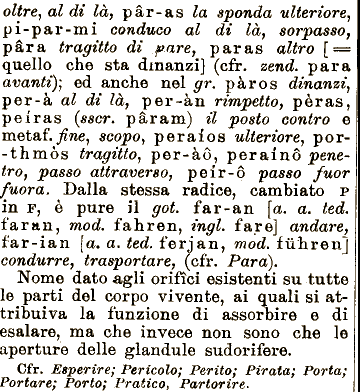 oltre, al di là, pâr-as la sponda ulteriore,
pi-par-mi conduco al di là, sorpasso,
pâra tragitto di pare, paras altro [=
quello che sta dinanzi] (cfr. zend. para
avanti); ed anche nel gr. pàros dinanzi,
per-à al di là, per-àn rimpetto, pèras,
peíras (sscr. pâram) il posto contro e
metaf. fine, scopo, peraios ulteriore, por-
-thmòs tragitto, per-àô, perainô pene-
tro, passo attraverso, peír-ô passo fuor
fuora. Dalla stessa radice, cambiato P
in F, è pure il got. far-an [a. a. ted.
faran, mod. fahren, ingl. fare] andare,
far-ian [a. a. ted. ferjan, mod. führen]
condurre, trasportare, (cfr. Para).
Nome dato agli orifici esistenti su tutte
le parti del corpo vivente, ai quali si at-
tribuiva la funzione di assorbire e di
esalare, ma che invece non sono che le
aperture delle glandule sudorifere.
Cfr. Esperire; Pericolo; Perito; Pirata; Porta;
Portare; Porto; Pratico, Partorire.